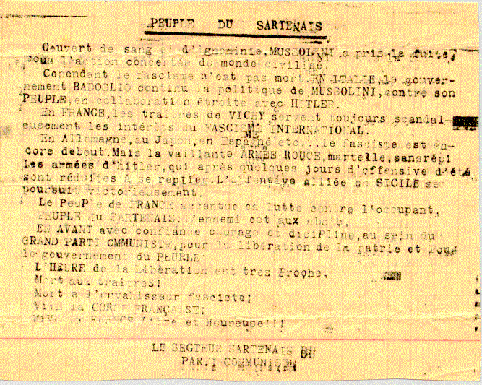 PEUPLE DU SARTENAIS
Couvert de sang et d'ignominie, MUSSOLINI a pris la fuite,
sous l'action concertée du monde civilisé.
Cependant le fascisme n'est pas mort. EN ITALIE, le gouver-
nement BADOGLIO continu la politique de MUSSOLINI, contre son
PEUPLE, en collaboration étroite avec HITLER.
En FRANCE, les traîtres de VICHY servent toujours scandal-
eusement les intérêts du FASCISME INTERNATIONAL.
En Allemagne, au Japon, en Espagne etc... le fascisme est en-
core debout. Mais la vaillante ARMEE ROUGE, martelle, sans répi
les armées d'Hitler, qui après quelques jours d'offensive d'été
sont réduites à se replier. L'offensive alliée en SICILE se
poursuit victorieusement.
Le PeuPle de FRANCE en lutte contre l'occupant,
PEUPLE du SARTENAIS, l'ennemi est aux
EN AVANT avec confiance courage et discipline, au sein du
GRAND PARTI CMMUNISTE, pour la libération de la patrie et pour
le gouvernement du PEUPLE
L'HEURE de la libération est très Proche.
Mort aux traîtres!
Mort à l'envahisseur fasciste!
Vive la CORSE FRANCAISE!
VIVE LA FRANCE libre et Heureuse!!!
LE SECTEUR SARTENAIS DU
PARTI COMMUNISTE